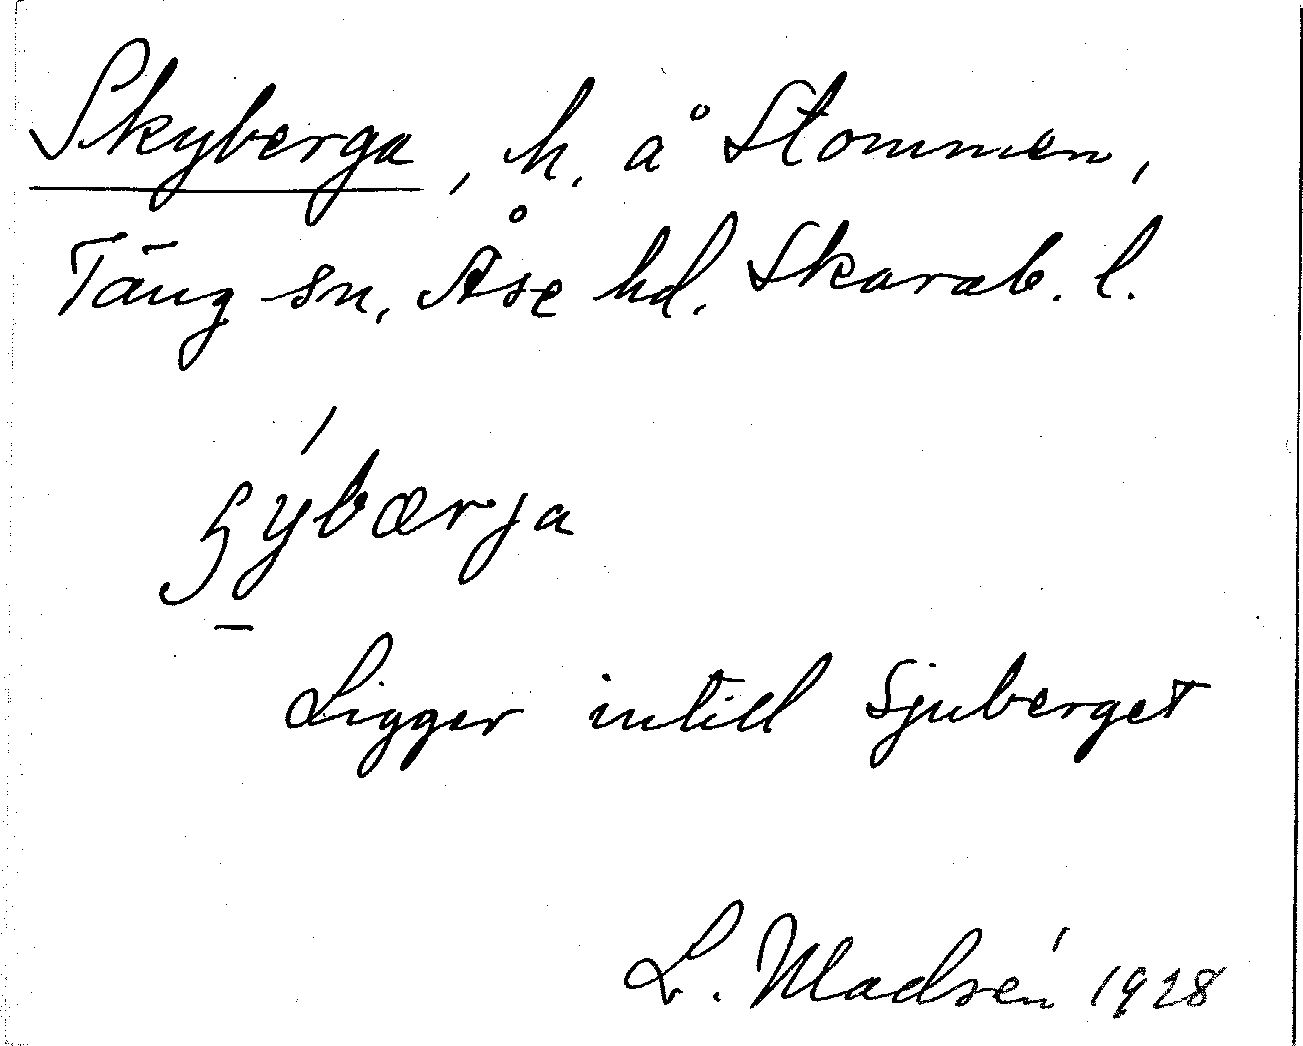 Skyberga, h. å Stommen,
Täng sn, Åse hd. Skarab. l.
ɧýbærja
Ligger intill Sjuberget
L. Madsén 1928